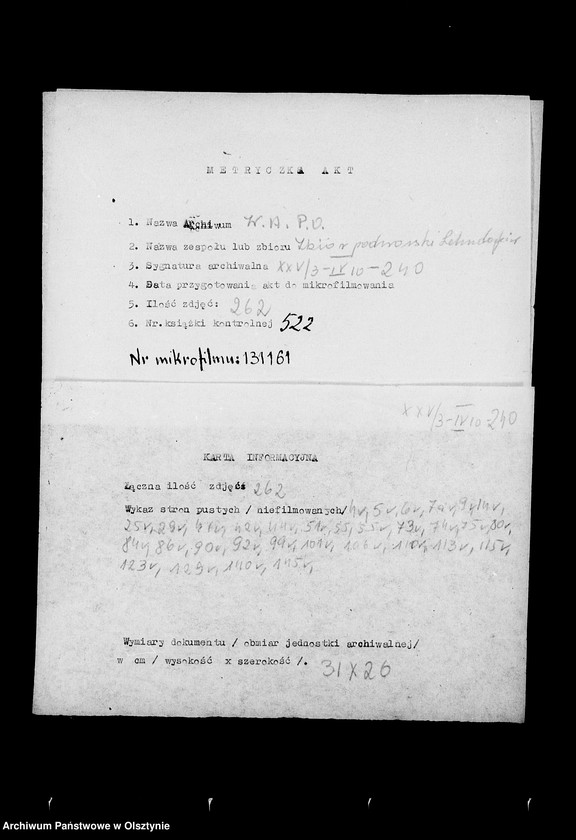 METRYCZKA AKT
1. Nazwa Archiwum W.A.P.O.
2. Nazwa zespołu lub zbioru Zbiór podworski Lehndorfów
3. Sygnatura archiwalna XXV/3-IV10-240
4. Data przygotowania akt do mikrofilmowania
5. Ilość zdjęć: 262
6. Nr.książki kontrolnej 522
Nr mikrofilmu: 131161
XXV/3-IV10-240
KARTA INFORMACYJNA
Łączna ilość zdjęć 262
Wykaz stron pustych / niefilmowanych/ 4v, 5v, 6v,
25v, 29v, 41v, 42v, 44v, 51v, 73v, 74v, 75v, 80v,
84v, 86v, 90v, 92v, 99v, 101v, 110v, 113v, 115v,
123v, 129v, 140v, 145v,
Wymiary dokumentu / obmiar jednostki archiwalnej/
w cm / wysokość x szerokość /. 31 x 26
Archiwum Państwowe w Olsztynie